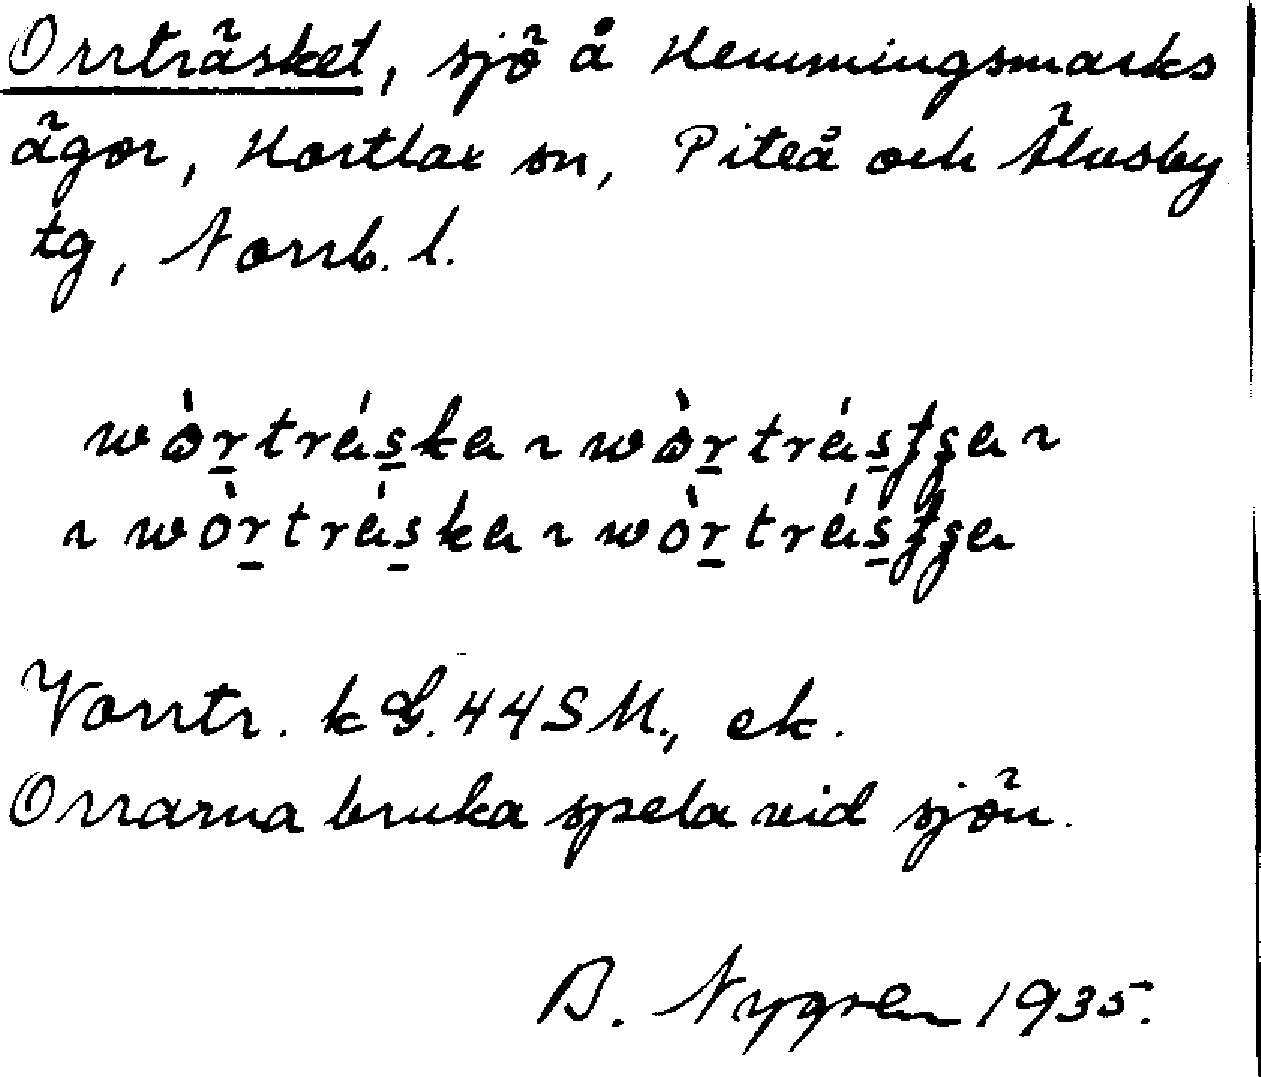 Orrträsket, sjö å Hemmingsmarks
ägor, Hortlax sn, Piteå och Älvsby
tg, Norrb. l.
wòr̲trás̲ka ~ wòr̲trás̲ʃʂa ~
~ wòr̲trás̲ka ~ wòr̲trás̲ʃʂa
Vorrtr. k G. 44 S M., ek.
Orrarna bruka spela vid sjön.
B. Nygren 1935.